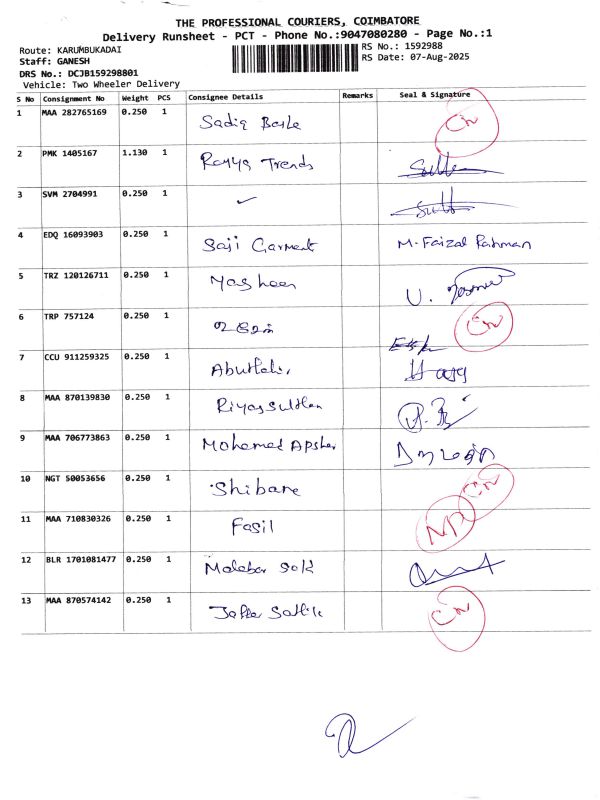 THE PROFESSIONAL COURIERS, COIMBATORE
Delivery Runsheet - PCT - Phone No.:9047080280 - Page No.:1
Route: KARUMBUKADAI
RS No.: 1592988
Staff: GANESH
RS Date: 07-Aug-2025
DRS No.: DCJB159298801
Vehicle: Two Wheeler Delivery
S No Consignment No Weight PCS Consignee Details Remarks Seal & Signature
1 MAA 282765169 0.250 1 Sadiq CN
2 PMK 1405167 1.130 1 Ramya Trends
3 SVM 2704991 0.250 1
4 EDQ 16093903 0.250 1 Saji Garment M. Faizal Rahman
5 TRZ 120126711 0.250 1 U.
6 TRP 757124 0.250 1 CN
7 CCU 911259325 0.250 1
8 MAA 870139830 0.250 1 Riyas Sulthan
9 MAA 706773863 0.250 1 Mohamed Apsher
10 NGT 50053656 0.250 1 Shibane CN
11 MAA 710830326 0.250 1 Fasil
12 BLR 1701081477 0.250 1 Malabar Gold
13 MAA 870574142 0.250 1 CN